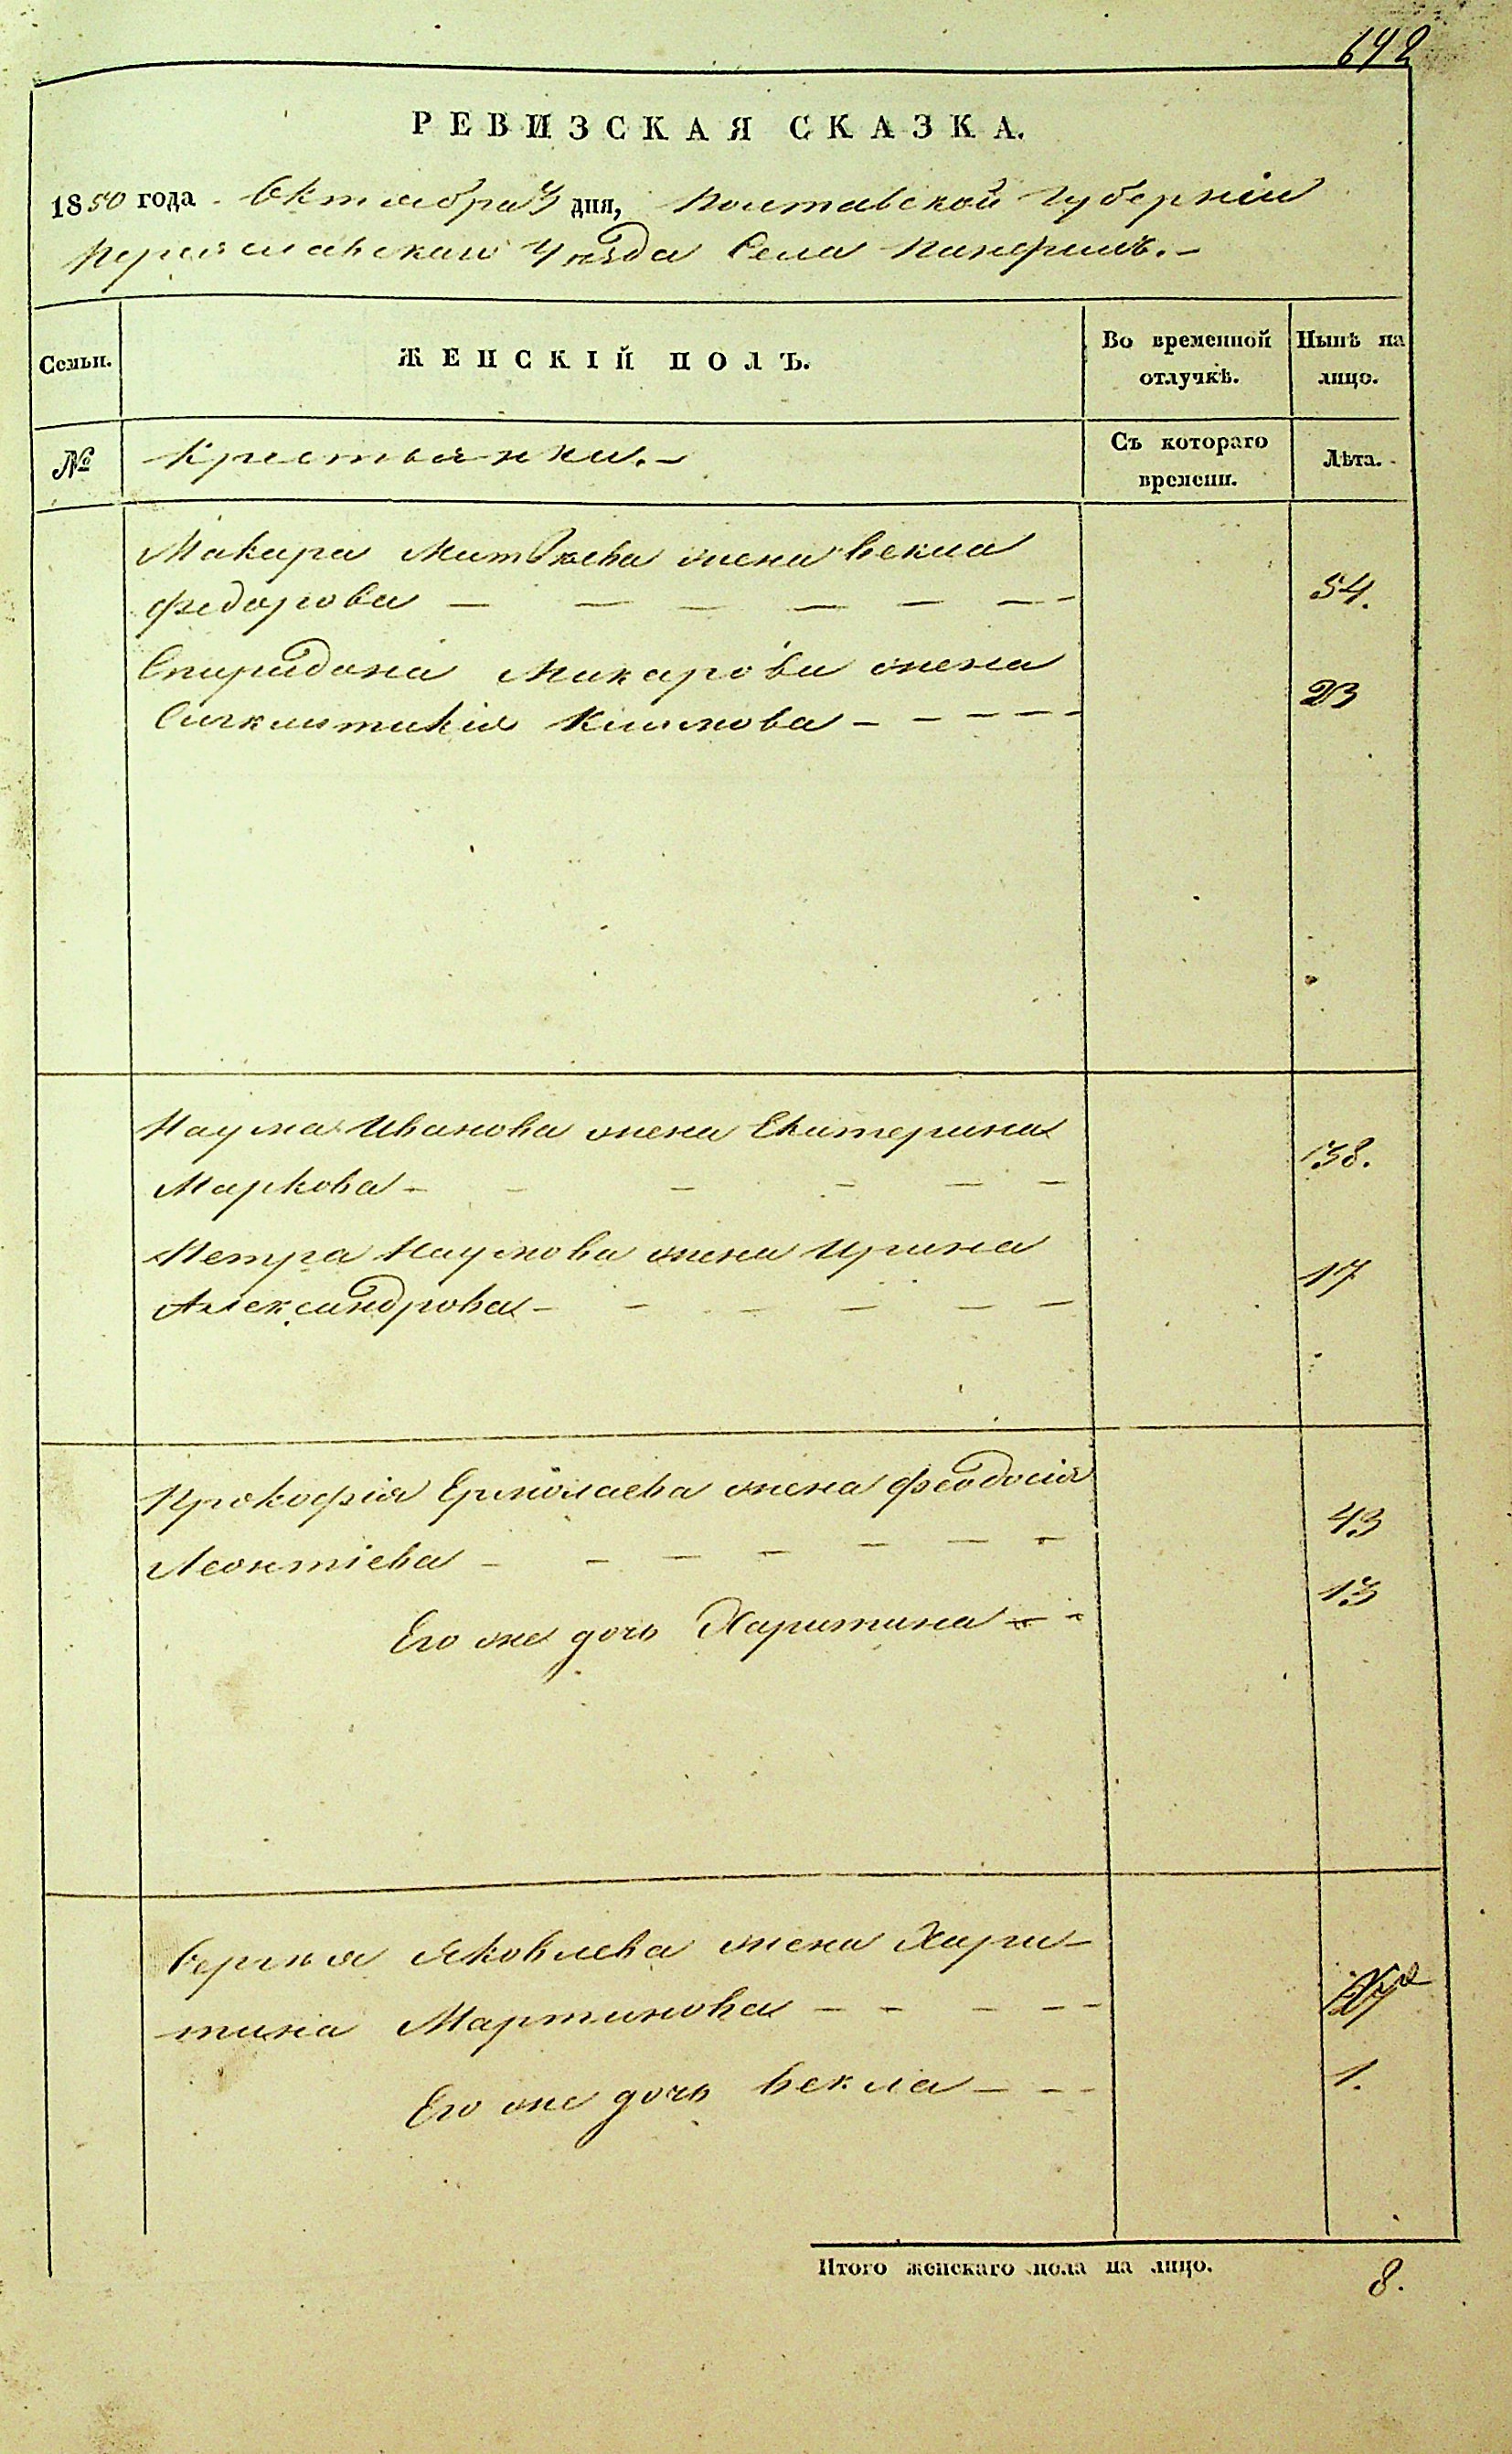 642
РЕВИЗСКАЯ СКАЗКА.
1850 года Октября 3 дня, Полтавской Губерніи
Переяславскаго Уѣзда Села Панфилъ.-
Семьи.
ЖЕНСКІЙ ПОЛЪ.
Во временной отлучкѣ.
Нынѣ на лицо.
№
Крестьянки.-
Съ котораго времени.
Лѣта.
Макара Матвѣева жена Векла
Федорова - - - - - - - 54.
Спиридона Макарова жена
Климова - - - - - 23
Наума Иванова жена Екатерина
Маркова - - - - - - 38.
Петра Наумова жена Ирина
Александрова - - - - - - 17
Прокофія Ермолаева жена Феодосія
Леонтіева - - - - - - - 43
Его же дочь Харитина - - 13
Сергѣя Яковлева жена Хари-
тина Мартинова - - - - -
Его же дочь Векла - - - 1.
Итого женскаго пола на лицо. 8.